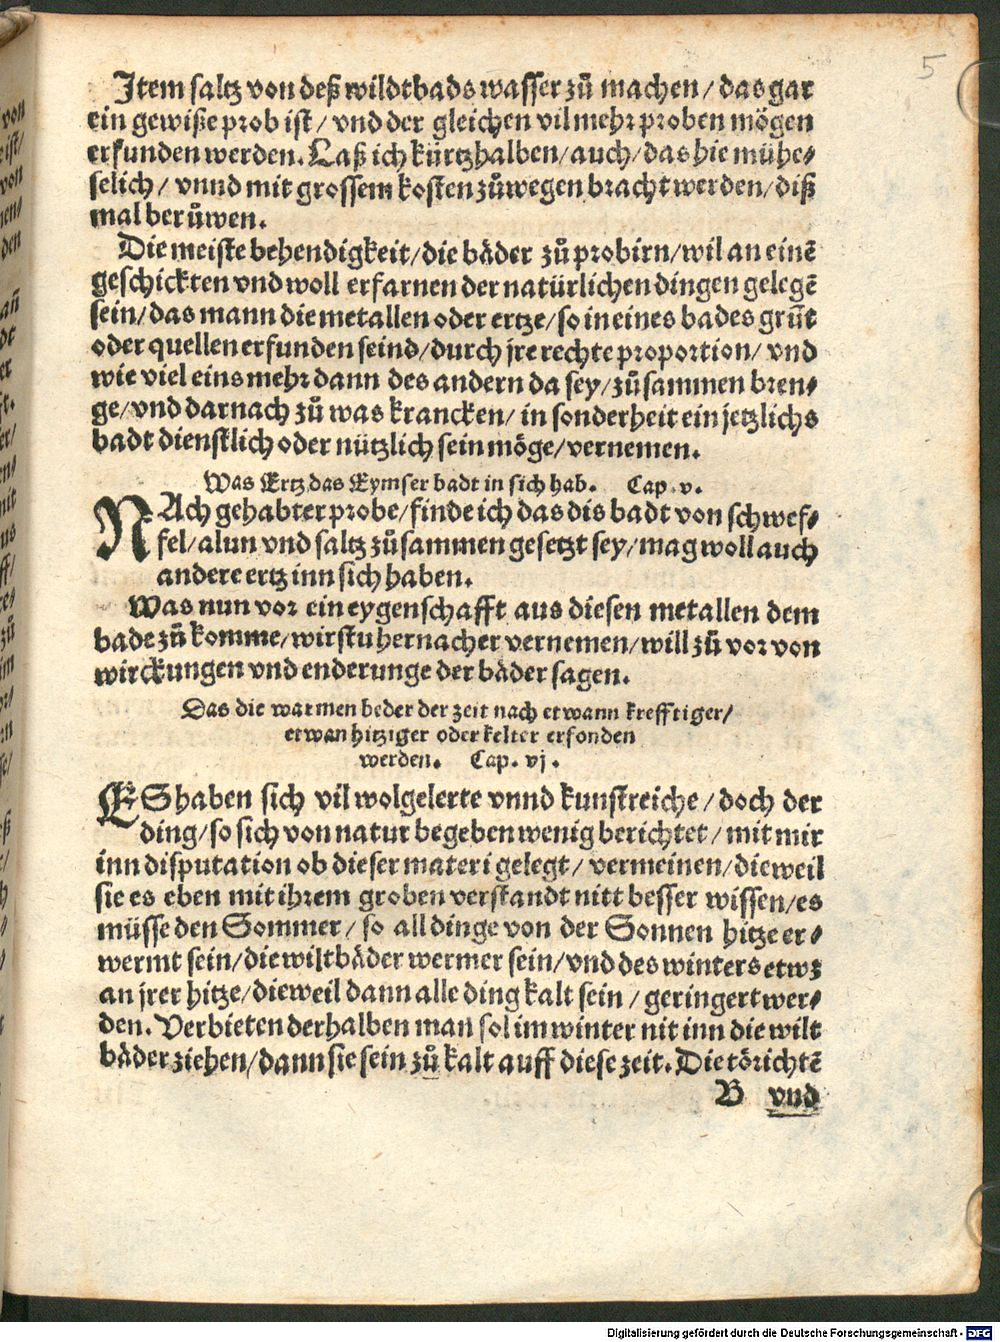 5
Item saltz von deß wildtbads wasser zů machen/ das gar
ein gewiße prob ist/ vnd der gleichen vil mehr proben mögen
erfunden werden. Laß ich kürtzhalben/ auch/ das hie mühe⸗
selich/ vnnd mit grossem kosten zůwegen bracht werden/ diß
mal berůwen.
Die meiste behendigkeit/ die bäder zů probirn/ wil an einē
geschickten vnd woll erfarnen der natürlichen dingen gelegē
sein/ das mann die metallen oder ertze/ so in eines bades grūt
oder quellen erfunden seind/ durch jre rechte proportion/ vnd
wie viel eins mehr dann des andern da sey/ zůsammen bren⸗
ge/ vnd darnach zů was krancken/ in sonderheit ein jetzlichs
badt dienstlich oder nützlich sein möge/ vernemen.
Was Ertz das Eymser badt in sich hab. Cap. v.
NAch gehabter probe/ finde ich das dis badt von schwef⸗
fel/ alun vnd saltz zůsammen gesetzt sey/ mag woll auch
andere ertz inn sich haben.
Was nun vor ein eygenschafft aus diesen metallen dem
bade zů komme/ wirstu hernacher vernemen/ will zů vor von
wirckungen vnd enderunge der bäder sagen.
Das die warmen beder der zeit nach etwann krefftiger/
etwan hitziger oder kelter erfonden
werden. Cap. vj.
ES haben sich vil wolgelerte vnnd kunstreiche/ doch der
ding/ so sich von natur begeben wenig berichtet/ mit mir
inn disputation ob dieser materi gelegt/ vermeinen/ dieweil
sie es eben mit ihrem groben verstandt nitt besser wissen/ es
müsse den Sommer/ so all dinge von der Sonnen hitze er⸗
wermt sein/ die wiltbäder wermer sein/ vnd des winters etwz
an jrer hitze/ dieweil dann alle ding kalt sein/ geringert wer⸗
den. Verbieten derhalben man sol im winter nit inn die wilt
bäder ziehen/ dann sie sein zů kalt auff diese zeit. Die törichtē
B vnd
Digitalisierung gefördert durch die Deutsche Forschungsgemeinschaft - DFG